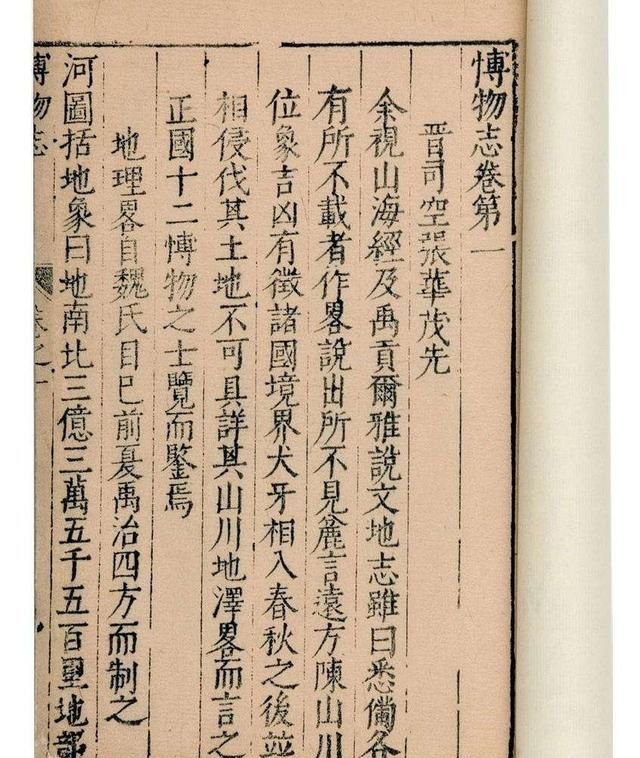 博物志卷第一
晋司空張華茂先
余視山海經及禹貢爾雅說文地志雖曰悉備各
有所不載者作畧說出所不見麄言遠方陳山川
位象吉凶有徵諸國境界犬牙相入春秋之後並
相侵伐其土地不可具詳其山川地澤畧而言之
正國十二博物之士覽而鑒焉
地理畧自魏氏目巳前夏禹治四方而制之
河圖括地象曰地南北三億三萬五千五百里地部
博物志 卷之一